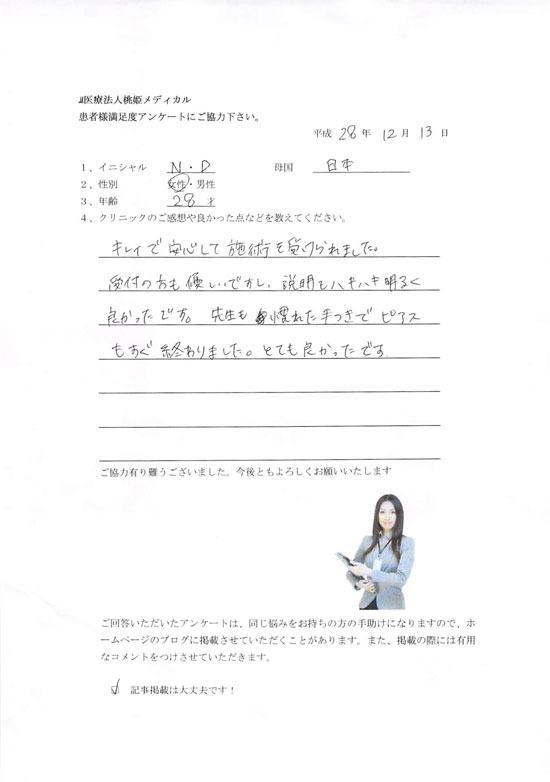 医療法人桃姫メディカル
患者様満足度アンケートにご協力下さい。
平成 28 年 12 月 13 日
1、イニシャル N・D 母国 日本
2、性別 女性・男性
3、年齢 28 才
4、クリニックのご感想や良かった点などを教えてください。
キレイで安心して施術を受けられました。
受付の方も優しいですし、説明もハキハキ明るく
良かったです。先生も慣れた手つきでピアス
もすぐ終わりました。とても良かったです
ご協力有り難うございました。今後ともよろしくお願いいたします
ご回答いただいたアンケートは、同じ悩みをお持ちの方の手助けになりますので、ホ
ームページのブログに掲載させていただくことがあります。また、掲載の際には有用
なコメントをつけさせていただきます。
記事掲載は大丈夫です！